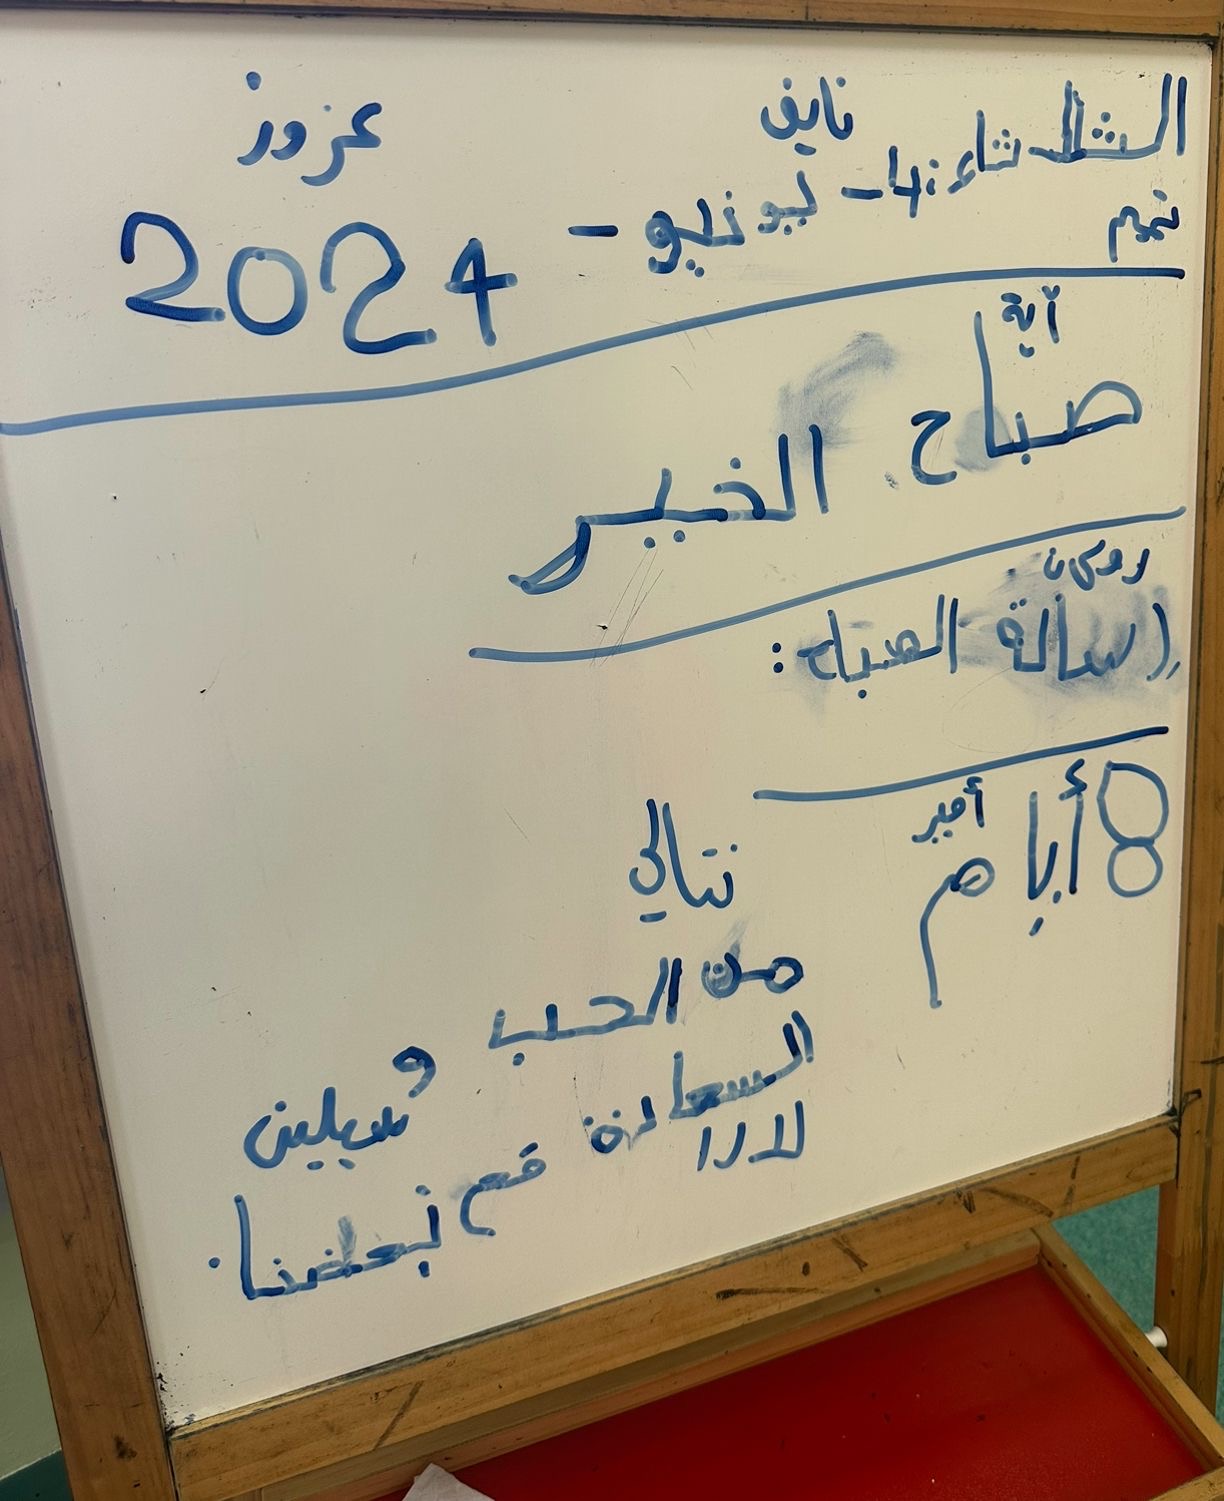 نايف عزوز
الثلاثاء: 4 - يونيو - 2024
تميم
آية
صباح الخير
روكان
رسالة الصباح:
8 أيام
أمير
نتالي
من الحب و
سيلين
السعادة مع بعضنا.
لارا